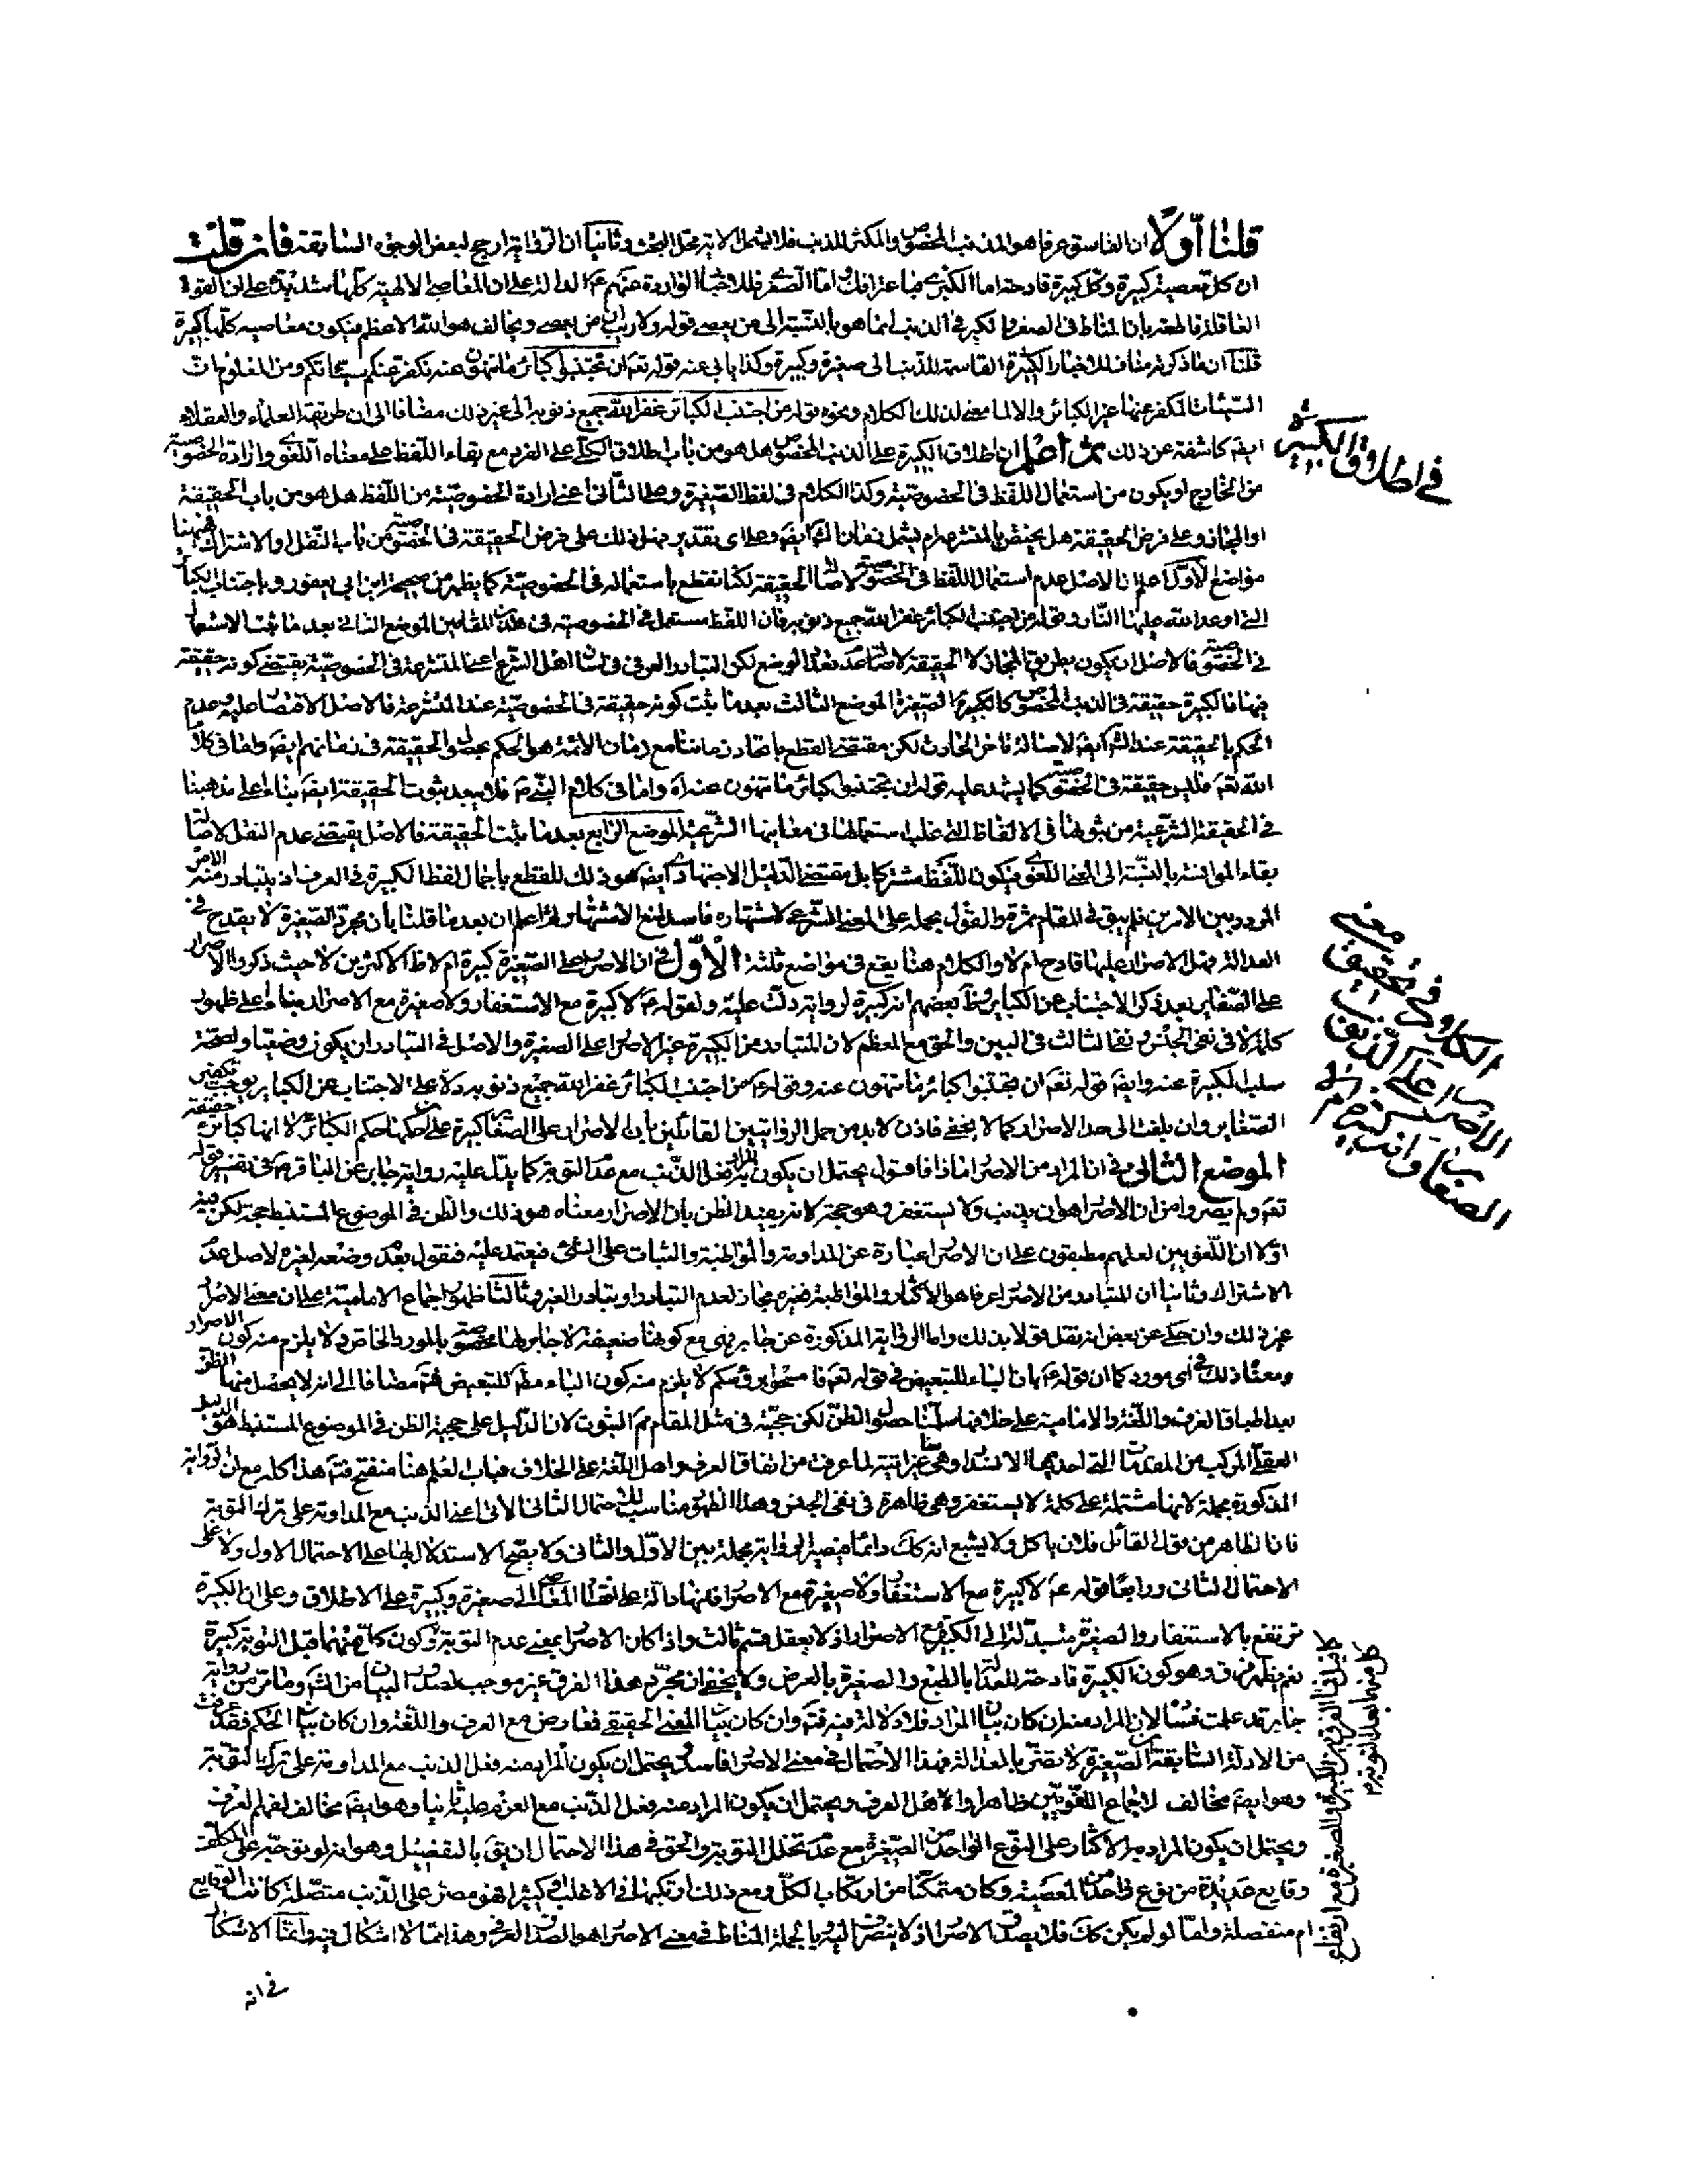 قلنا اوّلا ان الفاسق عرفا هو المذنب المخصوص والمكثر للذنب فلا يشمل الاية محل البحث وثانيا ان الرواية ارجح لبعض الوجوه السابقة فان قلت
ان كل معصية كبيرة وكل كبيرة قادحة اما الكبرى فباعترافك واما الصغرى فللاخبار الواردة عنهم ع الدالة على ان المعاصى الالهية كلها شديدة على ان القوة
العاقلة قاطعة بان المناط فى الصغر والكبر فى الذنب انما هو بالنسبة الى من يعصى قوله ولا ريب ان من يعصى ويخالف هو الله الاعظم فيكون معاصيه كلها كبيرة
قلنا ان ما ذكرته مناف للاخبار الكثيرة القاسمة للذنب الى صغيرة وكبيرة وكذا يابى عنه قوله تعم ان تجتنبوا كبائر ما تنهون عنه نكفر عنكم سيئاتكم ومن المعلوم ان
السيئات المكفر عنها غير الكبائر والا لما معنى لذلك الكلام ونحوه قوله من اجتنب الكبائر غفر الله جميع ذنوبه الى غير ذلك مضافا الى ان طريقة العلماء والعقلاء
ايضا كاشفة عن ذلك ثم اعلم ان اطلاق الكبيرة على الذنب المخصوص هل هو من باب اطلاق الكلى على الفرد مع بقاء اللفظ على معناه اللغوى وارادة الخصوصية
من الخارج او يكون من استعمال اللفظ فى الخصوصية وكذا الكلام فى لفظ الصغيرة وعلى الثانى اعنى ارادة الخصوصية من اللفظ هل هو من باب الحقيقة
او المجاز وعلى فرض الحقيقة هل يختص بالمتشرعة ام يشمل زمان الش ايضا وعلى اى تقدير فهل ذلك على فرض الحقيقة فى الخصوصية من باب النقل او الاشتراك فيهنا
مواضع الاوّل اعلم ان الاصل عدم استعمال اللفظ فى الخصوصية لاصالة الحقيقة لكنا نقطع باستعماله فى الخصوصية كما يظهر من صحيحة ابن ابى يعفور وباجتناب الكبائر
التى اوعد الله عليها النار وقوله من اجتنب الكبائر غفر الله جميع ذنوبه فان اللفظ مستعمل فى الخصوصية فى هذين المقامين الموضع الثانى بعد ما ثبت الاستعمال
فى الخصوصية فالاصل ان يكون بطريق المجاز لا الحقيقة لاصالة عدم تعدد الوضع لكن التبادر العرفى فى لسان اهل الشرع اعنى المتشرعة فى الخصوصية يقتضى كونه حقيقة
فيها فالكبيرة حقيقة فى الذنب المخصوص كالكبيرة الصغيرة الموضع الثالث بعد ما ثبت كونه حقيقة فى الخصوصية عند المتشرعة فالاصل الاقتصار عليه وعدم
الحكم بالحقيقة عند الش ايضا لاصالة تاخر الحادث لكن مقتضى القطع باتحاد زماننا مع زمان الائمة هو الحكم بحصول الحقيقة فى زمانهم ايضا واما فى كلام
الله تعم فليس حقيقة فى الخصوصية كما يشهد عليه قوله ان تجتنبوا كبائر ما تنهون عنه اه واما فى كلام النبى ص فلا يبعد ثبوت الحقيقة ايضا بناء على مذهبنا
فى الحقيقة الشرعية من ثبوتها فى الالفاظ التى غلب استعمالها فى معانيها الشرعية الموضع الرابع بعد ما ثبت الحقيقة فالاصل يقتضى عدم النقل لاصالة
بقاء الموانسة بالنسبة الى المعنى اللغوى فيكون اللفظ مشتركا بل مقتضى الدليل الاجتهادى ايضا هو ذلك للقطع باجمال لفظ الكبيرة فى العرف اذ يتبادر منه الامر
المردد بين الامرين فلم يبق فى المقام ثمرة والقول بحمله على المعنى الشرعى لاشتهاره فاسد لمنع الاشتهار ثم اعلم ان بعد ما قلنا بان مجرد الصغيرة لا يقدح فى
العدالة فهل الاصرار عليها قادح ام لا والكلام هنا يقع فى مواضع ثلثة الاوّل فى ان الاصرار على الصغيرة كبيرة ام لا ظ الاكثرين لا حيث ذكروا الاصرار
على الصغاير بعد ذكر الاجتناب عن الكبائر وظ بعضهم انه كبيرة لرواية دلت عليه ولقوله ع لا كبيرة مع الاستغفار ولا صغيرة مع الاصرار بناء على ظهور
كلمة لا فى نفى الجنس ونفى الثالث فى البين والحق مع المعظم لان المتبادر من الكبيرة غير الاصرار على الصغيرة والاصل فى التبادر ان يكون وضعيا ولصحة
سلب الكبيرة عنه وايضا قوله تعم ان تجتنبوا كبائر ما تنهون عنه وقوله ع من اجتنب الكبائر غفر الله جميع ذنوبه دلا على الاجتناب عن الكبائر يوجب تكفير
الصغاير وان بلغت الى حد الاصرار كما لا يخفى فاذن لا بد من حمل الروايتين القائلتين بان الاصرار على الصغاير كبيرة على ان حكمها حكم الكبائر لا انها كبائر حقيقة
الموضع الثانى فى ان المراد من الاصرار ماذا فاقول يحتمل ان يكون المراد به فعل الذنب مع عدم التوبة كما يدل عليه رواية جابر عن الباقر ع فى تفسير قوله
تعم ولم يصروا من ان الاصرار هو ان يذنب ولا يستغفر وهو حجة لانه يفيد الظن بان الاصرار معناه هو ذلك والظن فى الموضوع المستنبط حجة لكن فيه
اوّلا ان اللغويين لعلهم مطبقون على ان الاصرار عبارة عن المداومة والمواظبة والثبات على الشئ فيعتمد عليه فنقول بعدم وضعه لغيره لاصل عدم
الاشتراك وثانيا ان المتبادر من الاصرار عرفا هو الاكثار والمواظبة فغيره مجاز لعدم التبادر او بتبادر الغير وثالثا ظهور اجماع الامامية على ان معنى الاصرار
غير ذلك وان حكى عن بعض انه نقل قولا بذلك واما الرواية المذكورة عن جابر فهى مع كونها ضعيفة لا جابر لها مخصوصة بالمورد الخاص ولا يلزم منه كون الاصرار
ومعناه ذلك فى اى مورد كما ان قوله ع بان الباء للتبعيض فى قوله تعم فامسحوا برؤسكم لا يلزم منه كون الباء مطلقا للتبعيض فتم مضافا الى انه لا يحصل منها الظن
بعد اطباق العرف واللغة والامامية على خلافها سلمنا حصول الظن لكن حجيته فى مثل المقام مم الثبوت لان الدليل على حجية الظن فى الموضوع المستنبط هو الدليل
العقلى المركب من المقدمات التى احديها الانسداد وهى هنا غير اتية لما عرفت من اتفاق العرف واهل اللغة على الخلاف فباب العلم هنا منفتح فتم هذا كله مع ان الرواية
المذكورة مجملة لانها مشتملة على كلمة لا يستغفر وهى ظاهرة فى نفى الجنس وهذا الظهور مناسب للاحتمال الثانى الاتى اعنى الذنب مع المداومة على ترك التوبة
فانا لظاهر من قول القائل فلان ياكل ولا يشبع انه كك دائما فيصير الرواية مجملة بين الاوّل والثانى ولا يصح الاستدلال بها على الاحتمال الاول ولا على
الاحتمال الثانى ورابعا قوله ع لا كبيرة مع الاستغفار ولا صغيرة مع الاصرار فانها دالة على انقسام المعاصى الى صغيرة وكبيرة على الاطلاق وعلى ان الكبيرة
ترتفع بالاستغفار والصغيرة متبدلة الى الكبيرة مع الاصرار اذ لا يعقل قسم ثالث واذا كان الاصرار بمعنى عدم التوبة وكون كل منهما قبل التوبة كبيرة
نعم يظهر فرق وهو كون الكبيرة قادحة للعدالة بالطبع والصغيرة بالعرض ولا يخفى ان مجرد هذا الفرق غير موجب لصدور البيان من الش وما مر من رواية
جابر قد علمت فساده لان المراد منه ان كان بيان المراد فلا دلالة فيه فتم وان كان بيان المعنى الحقيقى فمعارض مع العرف واللغة وان كان بيان الحكم فقد عرفت
من الادلة السابقة ان الصغيرة لا تضر بالعدالة فهذا الاحتمال فى معنى الاصرار فاسد ويحتمل ان يكون المراد منه فعل الذنب مع المداومة على ترك التوبة
وهو ايضا مخالف لاجماع اللغويين ظاهرا ولاهل العرف ويحتمل ان يكون المراد منه فعل الذنب مع العزم عليه ثانيا وهو ايضا مخالف لفهم العرف
ويحتمل ان يكون المراد به الاكثار على النوع الواحد من الصغيرة مع عدم تخلل التوبة والحق فى هذا الاحتمال ان يق بالتفصيل وهو انه لو توجه على المكلف
وقايع عديدة من نوع واحد من المعصية وكان متمكنا من ارتكاب لكل ومع ذلك ارتكبها فى الاغلب وكثيرا فهو مصر على الذنب متصلة كانت الوقايع
ام منفصلة واما لو لم يكن كك فلا يصدق الاصرار اذ لا ينصرف اليه بالجملة المناط فى معنى الاصرار هو الصدق العرفى وهذا مما لا اشكال فيه وانما الاشكال
فى انه
فى اطلاق الكبيرة
الكلام فى تحقيق معنى
الاصرار على الذنب
الصغاير وانه كبيرة ام لا